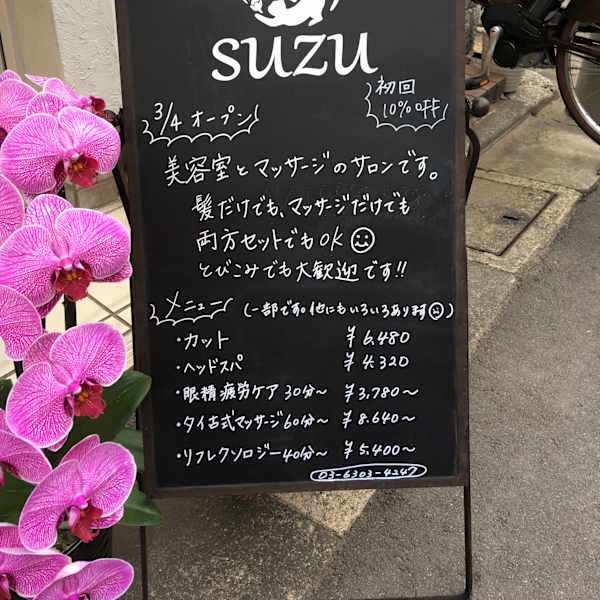 SUZU
3/4 オープン
初回
10%オフ
美容室とマッサージのサロンです。
髪だけでも、マッサージだけでも
両方セットでもOK
とびこみでも大歓迎です!!
メニュー (一部です。他にもいろいろあります)
・カット ¥6,480
・ヘッドスパ ¥4,320
・眼精疲労ケア 30分〜 ¥3,780〜
・タイ古式マッサージ60分〜 ¥8,640〜
・リフレクソロジー40分〜 ¥5,400〜
03-6303-4247